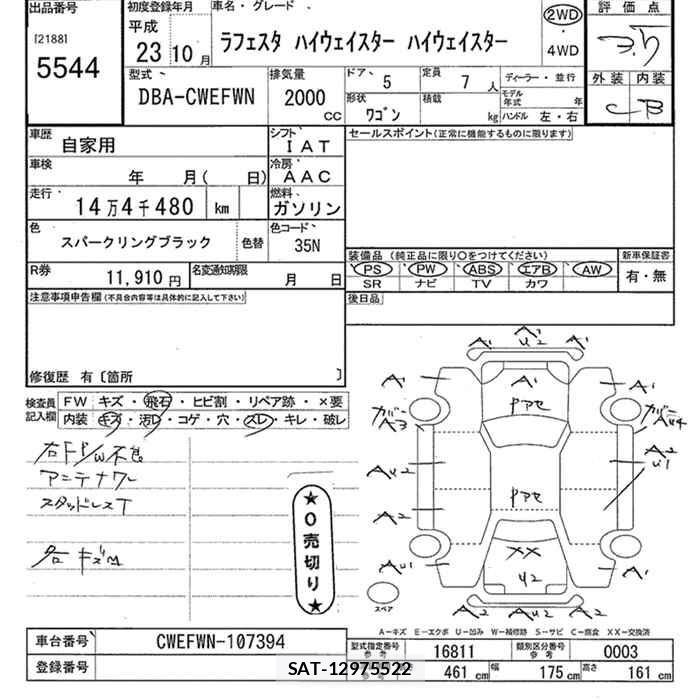 出品番号 初度登録年月 車名・グレード 評価点
[2188] 平成 2WD
5544 23年10月 ラフェスタ ハイウェイスター ハイウェイスター 4WD 3.5
型式 排気量 ドア 5 定員 7人 ディーラー・並行 外装 内装
DBA-CWEFWN 2000cc 形状 ワゴン 積載 kg モデル年式 年 ハンドル 左・右 C B
車歴 自家用 シフト IAT セールスポイント(正常に機能するものに限ります)
車検 年 月( 日) 冷房 AAC
走行 14万4千480 km 燃料 ガソリン
色 スパークリングブラック 色替 色コード 35N
装備品 (純正品に限り○をつけてください) 新車保証書
R券 11,910円 名変通知期限 月 日 PS PW ABS エアB AW 有・無
SR ナビ TV カワ
注意事項申告欄(不具合内容等は具体的に記入して下さい) 後日品
修復歴 有〔箇所 〕
検査員記入欄 FW キズ・飛石・ヒビ割・リペア跡・×要
内装 キズ・汚レ・コゲ・穴・スレ・キレ・破レ
右FP/W不良
アンテナワレ
スタッドレスT
各キズM
★0売切り★
A¹ A¹ U2 A¹
A¹ A¹ A¹
Pアセ
カバーA3 カバーAU4
AU2 A2 U1
Pアセ
A2
XX
AU1 U2 A¹
スペア A2 AU2 A2
A-キズ E-エクボ U-凹み W-補修跡 S-サビ C-腐食 XX-交換済
車台番号 CWEFWN-107394 型式指定番号 参考 16811 類別区分番号 参考 0003
登録番号 参考 461cm 幅 175cm 高さ 161cm
SAT-12975522